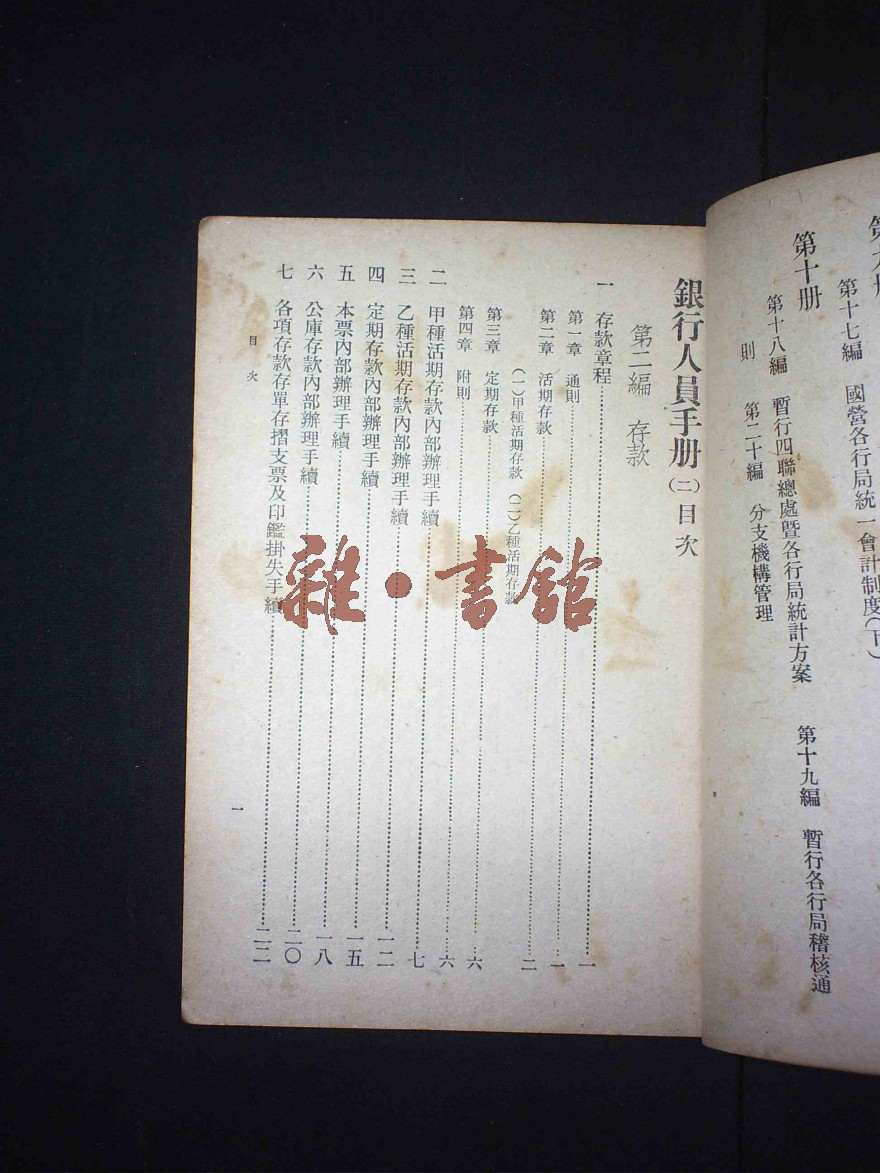 第十七編　國營各行局統一會計制度(下)
第十册
第十八編　暫行四聯總處暨各行局統計方案　第十九編　暫行各行局稽核通
則　第二十編　分支機構管理
銀行人員手册(二)目次
第二編　存款
一　存款章程……一
第一章　通則……一
第二章　活期存款……二
(一)甲種活期存款　(二)乙種活期存款
第三章　定期存款……六
第四章　附則……六
二　甲種活期存款內部辦理手續……七
三　乙種活期存款內部辦理手續……一二
四　定期存款內部辦理手續……一五
五　本票內部辦理手續……一八
六　公庫存款內部辦理手續……二〇
七　各項存款存單存摺支票及印鑑掛失手續……二二
目次
一
雜·書館